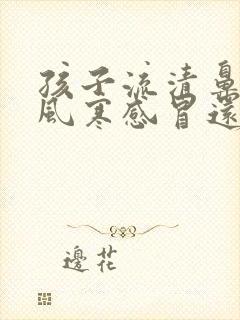 孩子流清鼻
風寒感冒還
邊花